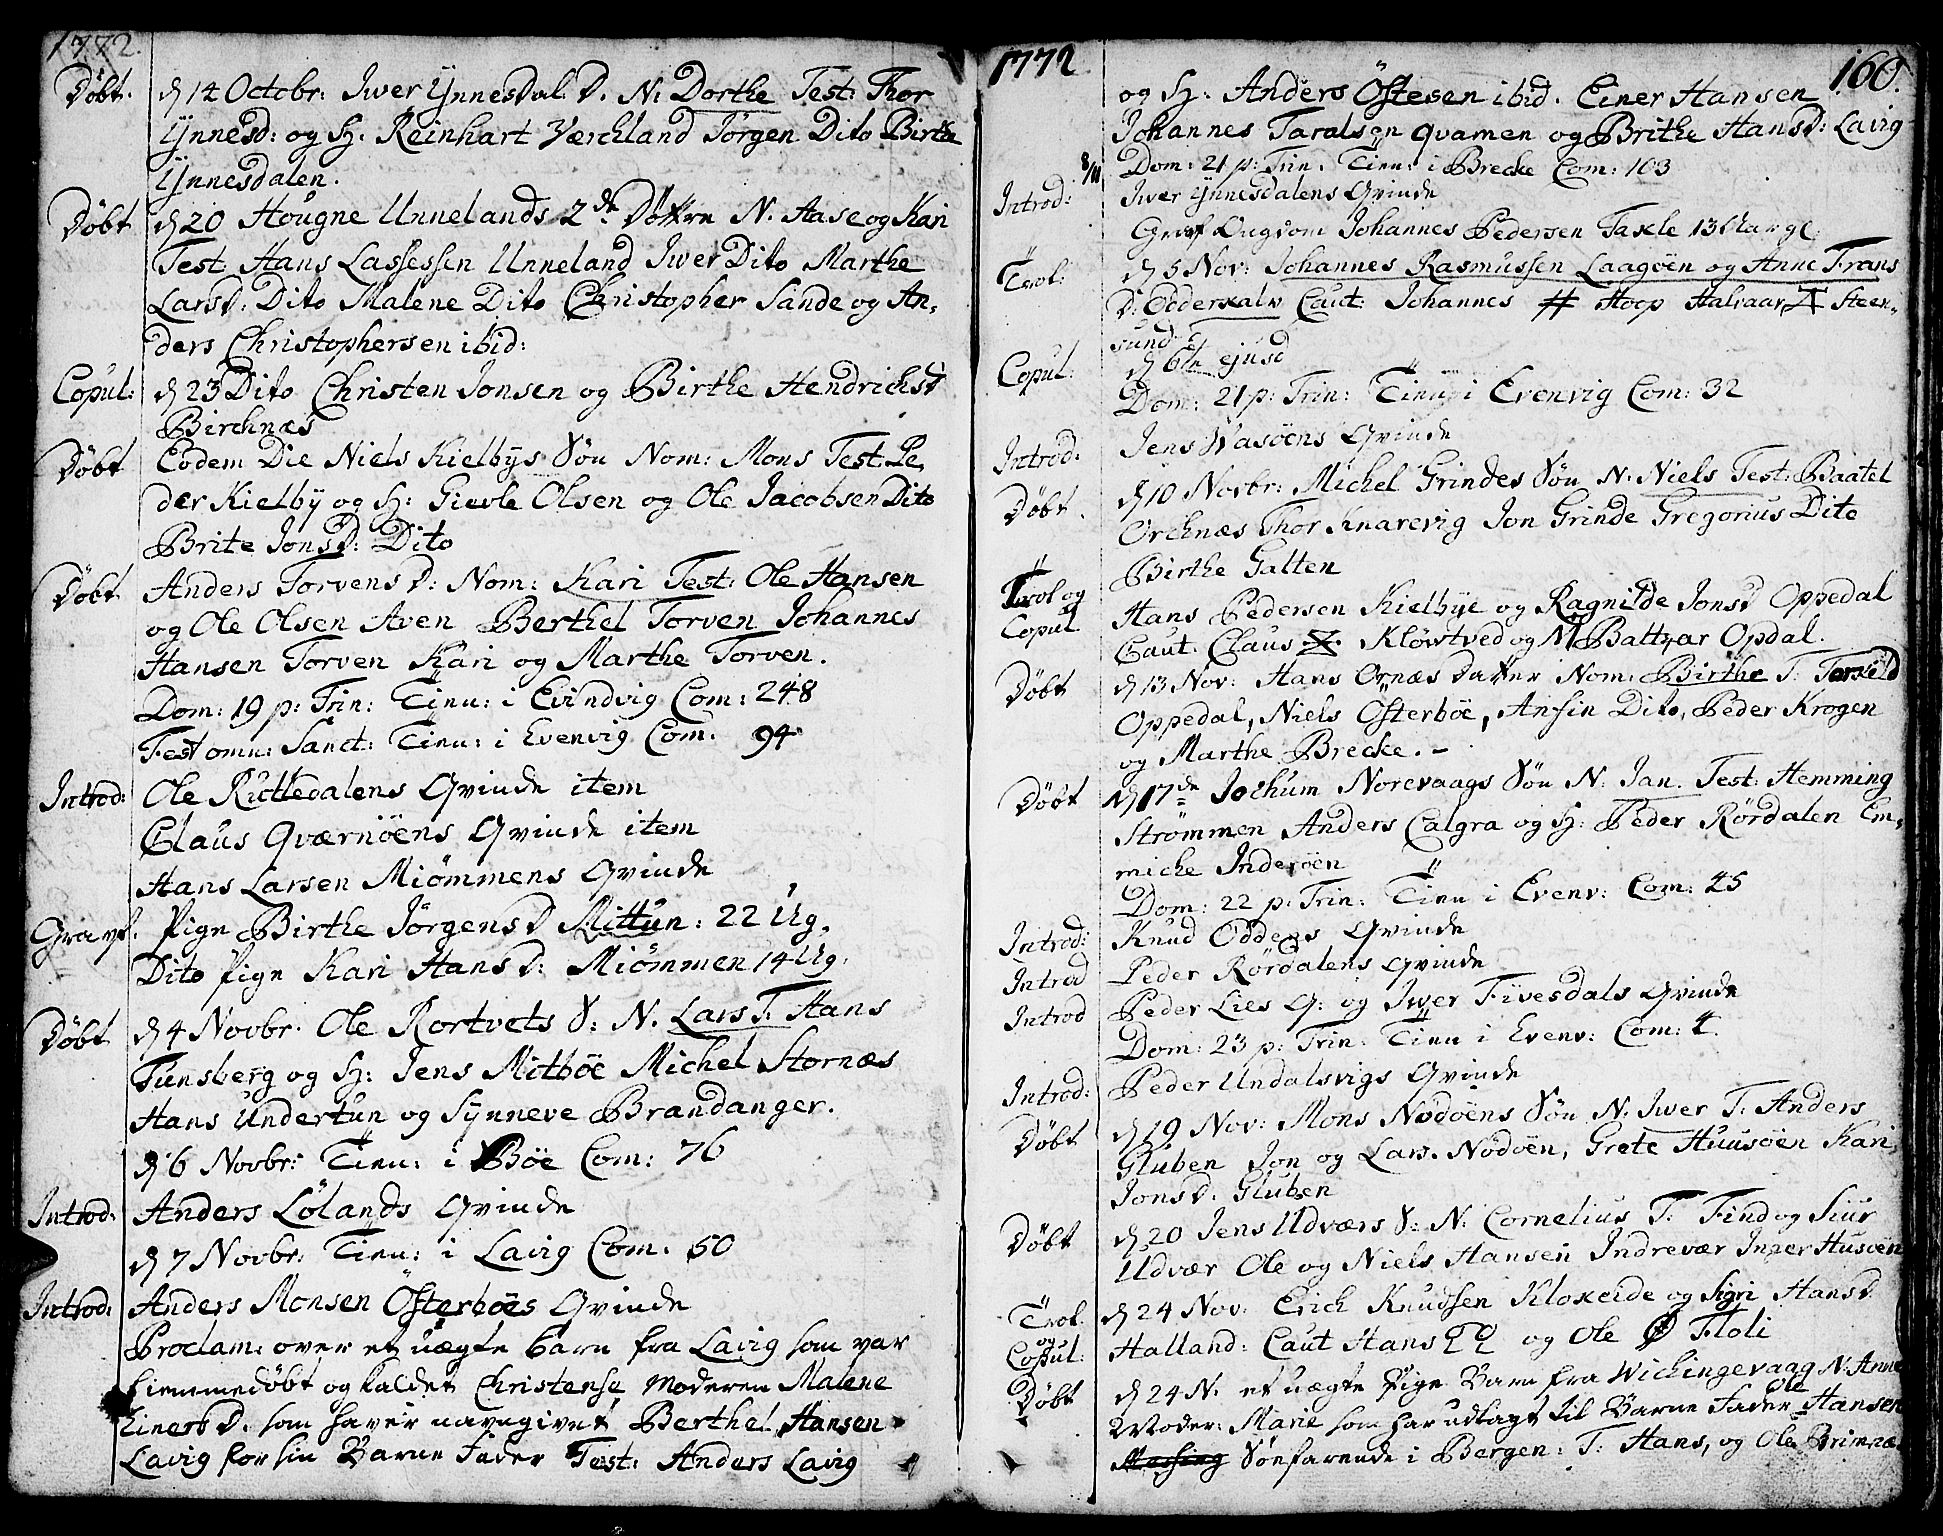 1772.
Döbt. d 14 Octobr: Iwer Ynnesdal D. N: Dorthe Test: Thor
Ynnesd: og H: Reinhart Værchland Jørgen Dito Birthe
Ynnesdalen.
Döbt d 20 Hougne Unnelands 2de Döttre N. Aase og Kari
Test Hans Lassessen Unneland Iwer Dito Marthe
Larsd: Dito Malene Dito Christopher Sande og An,
ders Christophersen ibid:
Copul: d 23 Dito Christen Jonsen og Birthe Hendrichsd
Birchnæs
Döbt Eodem Die Niels Kielbys Sön Nom: Mons Test: Pe,
der Kielby og H: Gierle Olsen og Ole Jacobsen Dito
Brite Jonsd: Dito
Döbt Anders Torvens D: Nom: Kari Test: Ole Hansen
og Ole Olsen Aven Berthel Torven Johannes
Hansen Torven Kari og Marthe Torven.
Dom: 19 p: Trin: Tien: i Evindvig Com: 248
Fest omn: Sanct: Tien: i Evenvig Com. 94
Introd: Ole Ruttedalens Qvinde item
Claus Qværnöens Qvinde item
Hans Larsen Miömmens Qvinde
Gravf. Pige Birthe Jörgensd Mittun: 22 Ug.
Dito Pige Kari Hansd: Miömmen 14 Ug.
Döbt d 4 Novbr. Ole Rortvets S: N. Lars T. Hans
Tunsberg og H: Jens Mitböe Michel Stornæs
Hans Undertun og Synneve Brandanger.
d 6 Novbr: Tien: i Böe Com: 76
Introd: Anders Lölands Qvinde
d 7 Novbr: Tien: i Lavig Com. 50
Introd: Anders Monsen Österböes Qvinde
Proclam: over et uægte barn fra Lavig som var
hiemmedöbt og kaldet Christense, Moderen Malene
Einersd. som haver navngivet Berthel Hansen
Lavig for sin Barne Fader Test: Anders Lavig
1772 160.
og H: Anders Östesen ibid. Einer Hansen
Johannes Taralsen Qvamen og Brithe Hansd: Lavig
8/11 Dom: 21 p: Trin: Tien: i Brecke Com: 103
Introd: Iwer Ynnesdalens Qvinde
Gravf Ungdom Johannes Pedersen Taxle 13
Trol: d 5 Nov: Johannes Rasmussen Laagöen og Anne Frans
D: Odderkalv Caut: Johannes Hoop Halvaar Steen-
sund
Copul: d 6te ejusd
Dom: 21 p: Trin: Tien: i Evenvig Com: 32
Introd: Jens Wasöens Qvinde
Döbt. d 10 Novbr: Michel Grindes Sön N. Niels Test: Baatel
Orchnæs Thor Knarevig Jon Grinde Gregorius Dito
Birthe Galten
Trol og Hans Pedersen Kielbye og Ragnilde Jonsd Oppedal
Copul Caut. Claus Klöwtved og Baltzar Opdal.
Döbt d 13 Nov: Hans Ornæs Datter Nom: Birthe T: Torkild
Oppedal, Niels Österböe, Ansin Dito, Peder Krogen
og Marthe Brecke. -
Döbt d 17de Jochum Norevaags Sön N. Jan. Test: Hemming
Strömmen Anders Calgra og H: Peder Rördalen Em,
miche Inderöen
Dom: 22 p: Trin: Tien i Evenv: Com: 25
Introd: Knud Oddens Qvinde
Introd Peder Rördalens Qvinde
Introd Peder Lies Q: og Iwer Fivesdals Qvinde
Dom: 23 p: Trin: Tien i Evenv: Com: 4.
Introd: Peder Undalsvigs Qvinde
Döbt d 19 Nov: Mons Nodöens Sön N. Iwer T. Anders
Gluben Jon og Lars. Nodöen, Grete Huusöen Kari
Jonsd: Gluben
Döbt d 20 Jens Udværs S: N: Cornelius T: Find og Siur
Udvær Ole og Niels Hansen Indrevær Inger Husöen
Trol. d 24 Nov: Erich Knudsen Kloxeide og Sigri Hansd
og Copul: Halland: Caut Hans og Ole Floli
Döbt d 24 N. et uægte Pige Barn fra Wichingevaag N. Anne
Moder: Marie som har udlagt til Barne Fader Ole Hansen
Søefarende i Bergen: T: Hans, og Ole Brimnæ